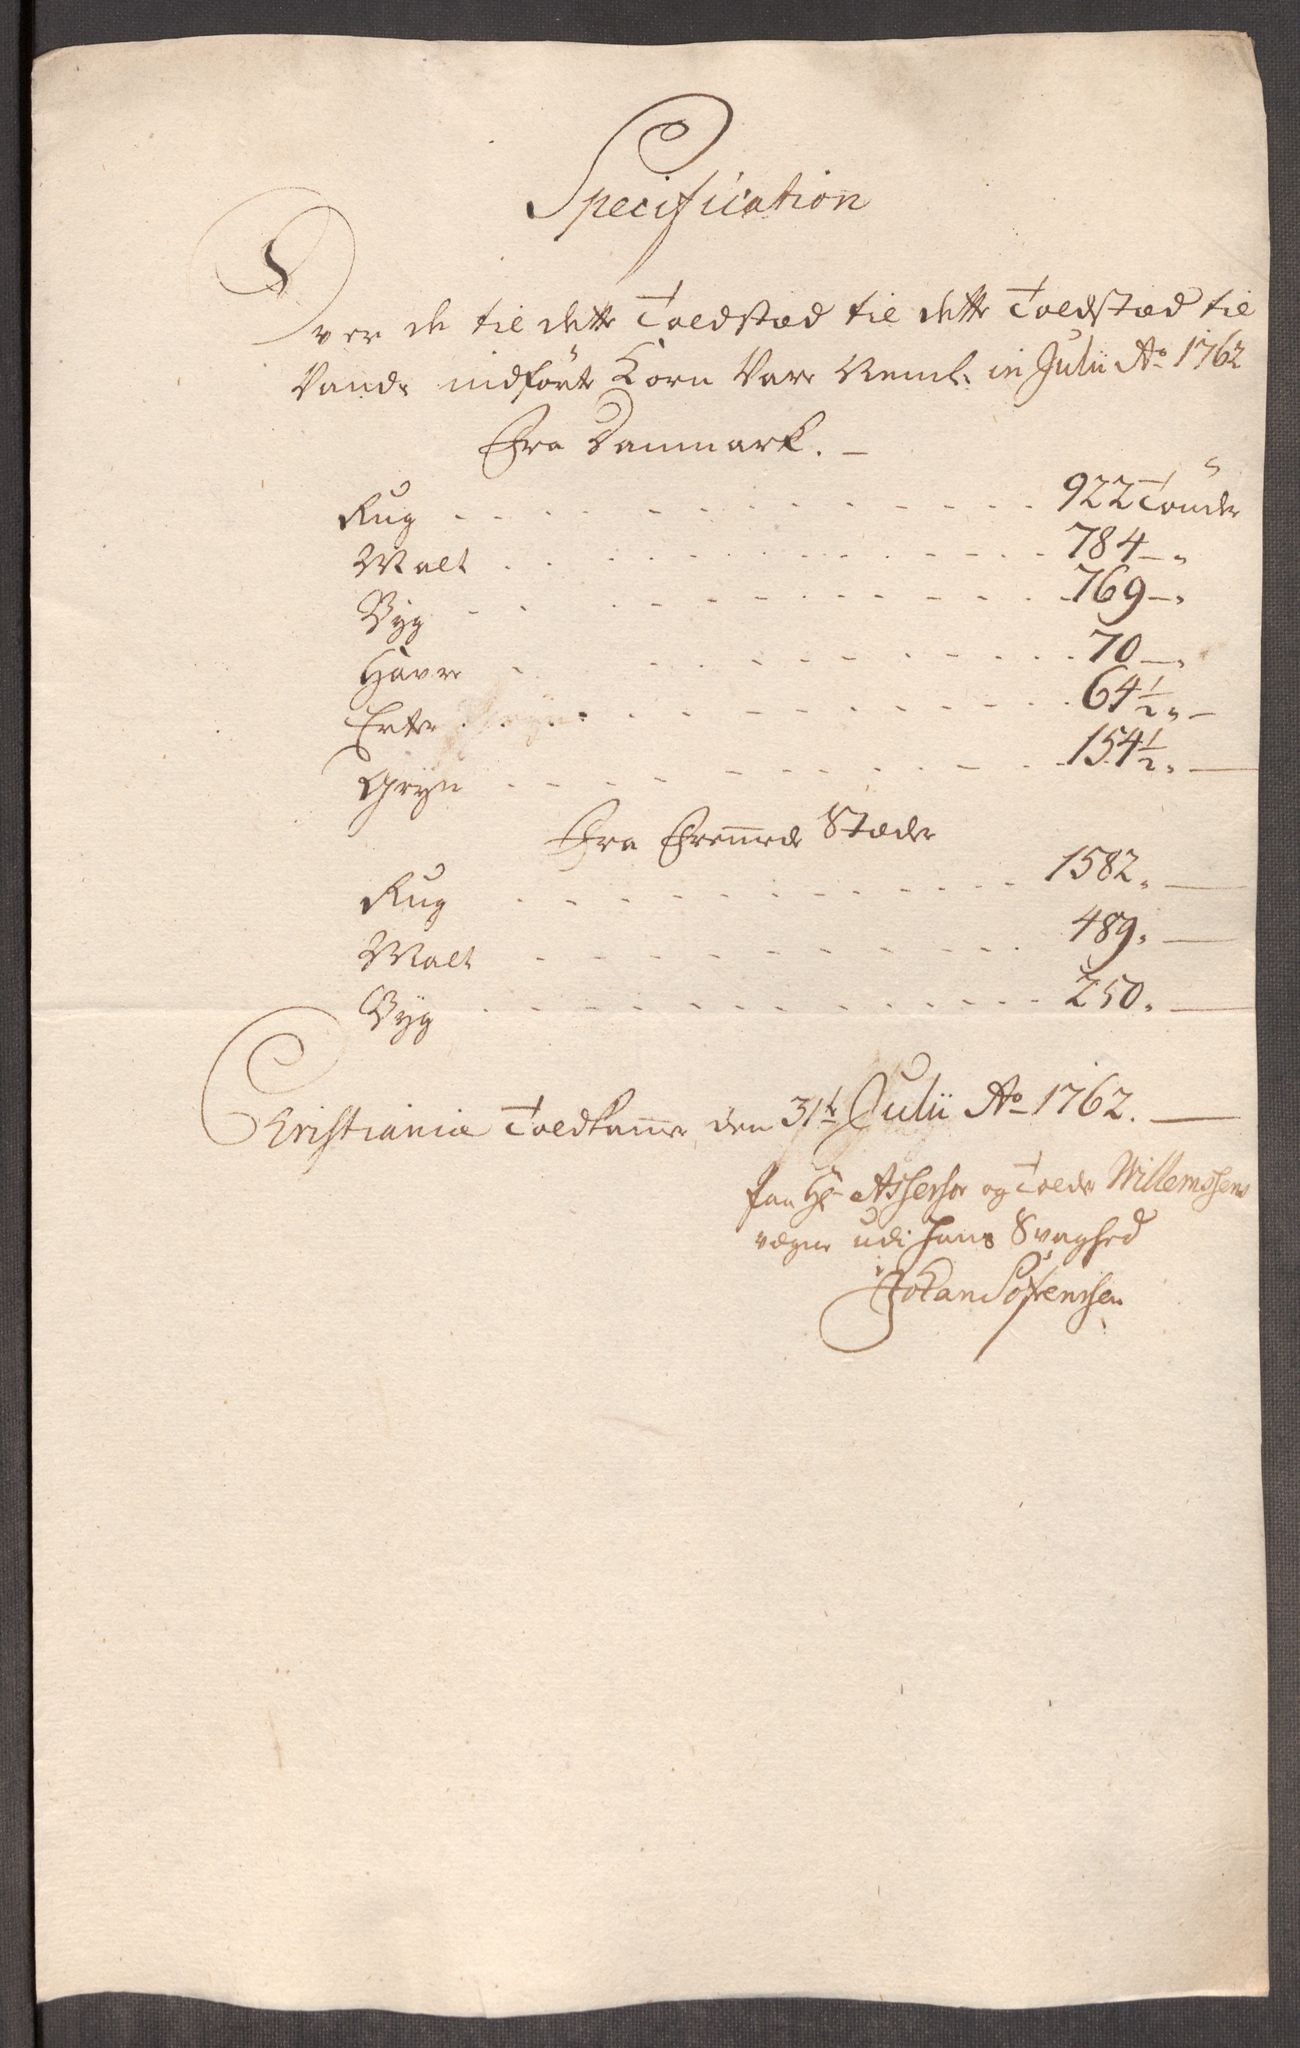 Specification
Over de til dette Toldstæd til dette Toldstæd til
Vands indførte Korn Vare Neml: in Julii Ao 1762
Fra Danmark. –
Rug 922 Tønder
Malt 784 – "
Byg 769 – "
Havre 70 – "
Erter 64 1/2 " –
Gryn 154 1/2 " –
Fra Fremede Stæder
Rug 1582 " –
Malt 489 " –
Byg 250 " –
Christiania Toldkamer den 31te Julii Ao 1762. –
Paa Hr Assessor og Tolder Willemssens
vegne udi hans Svaghed
Johan Sørenssen